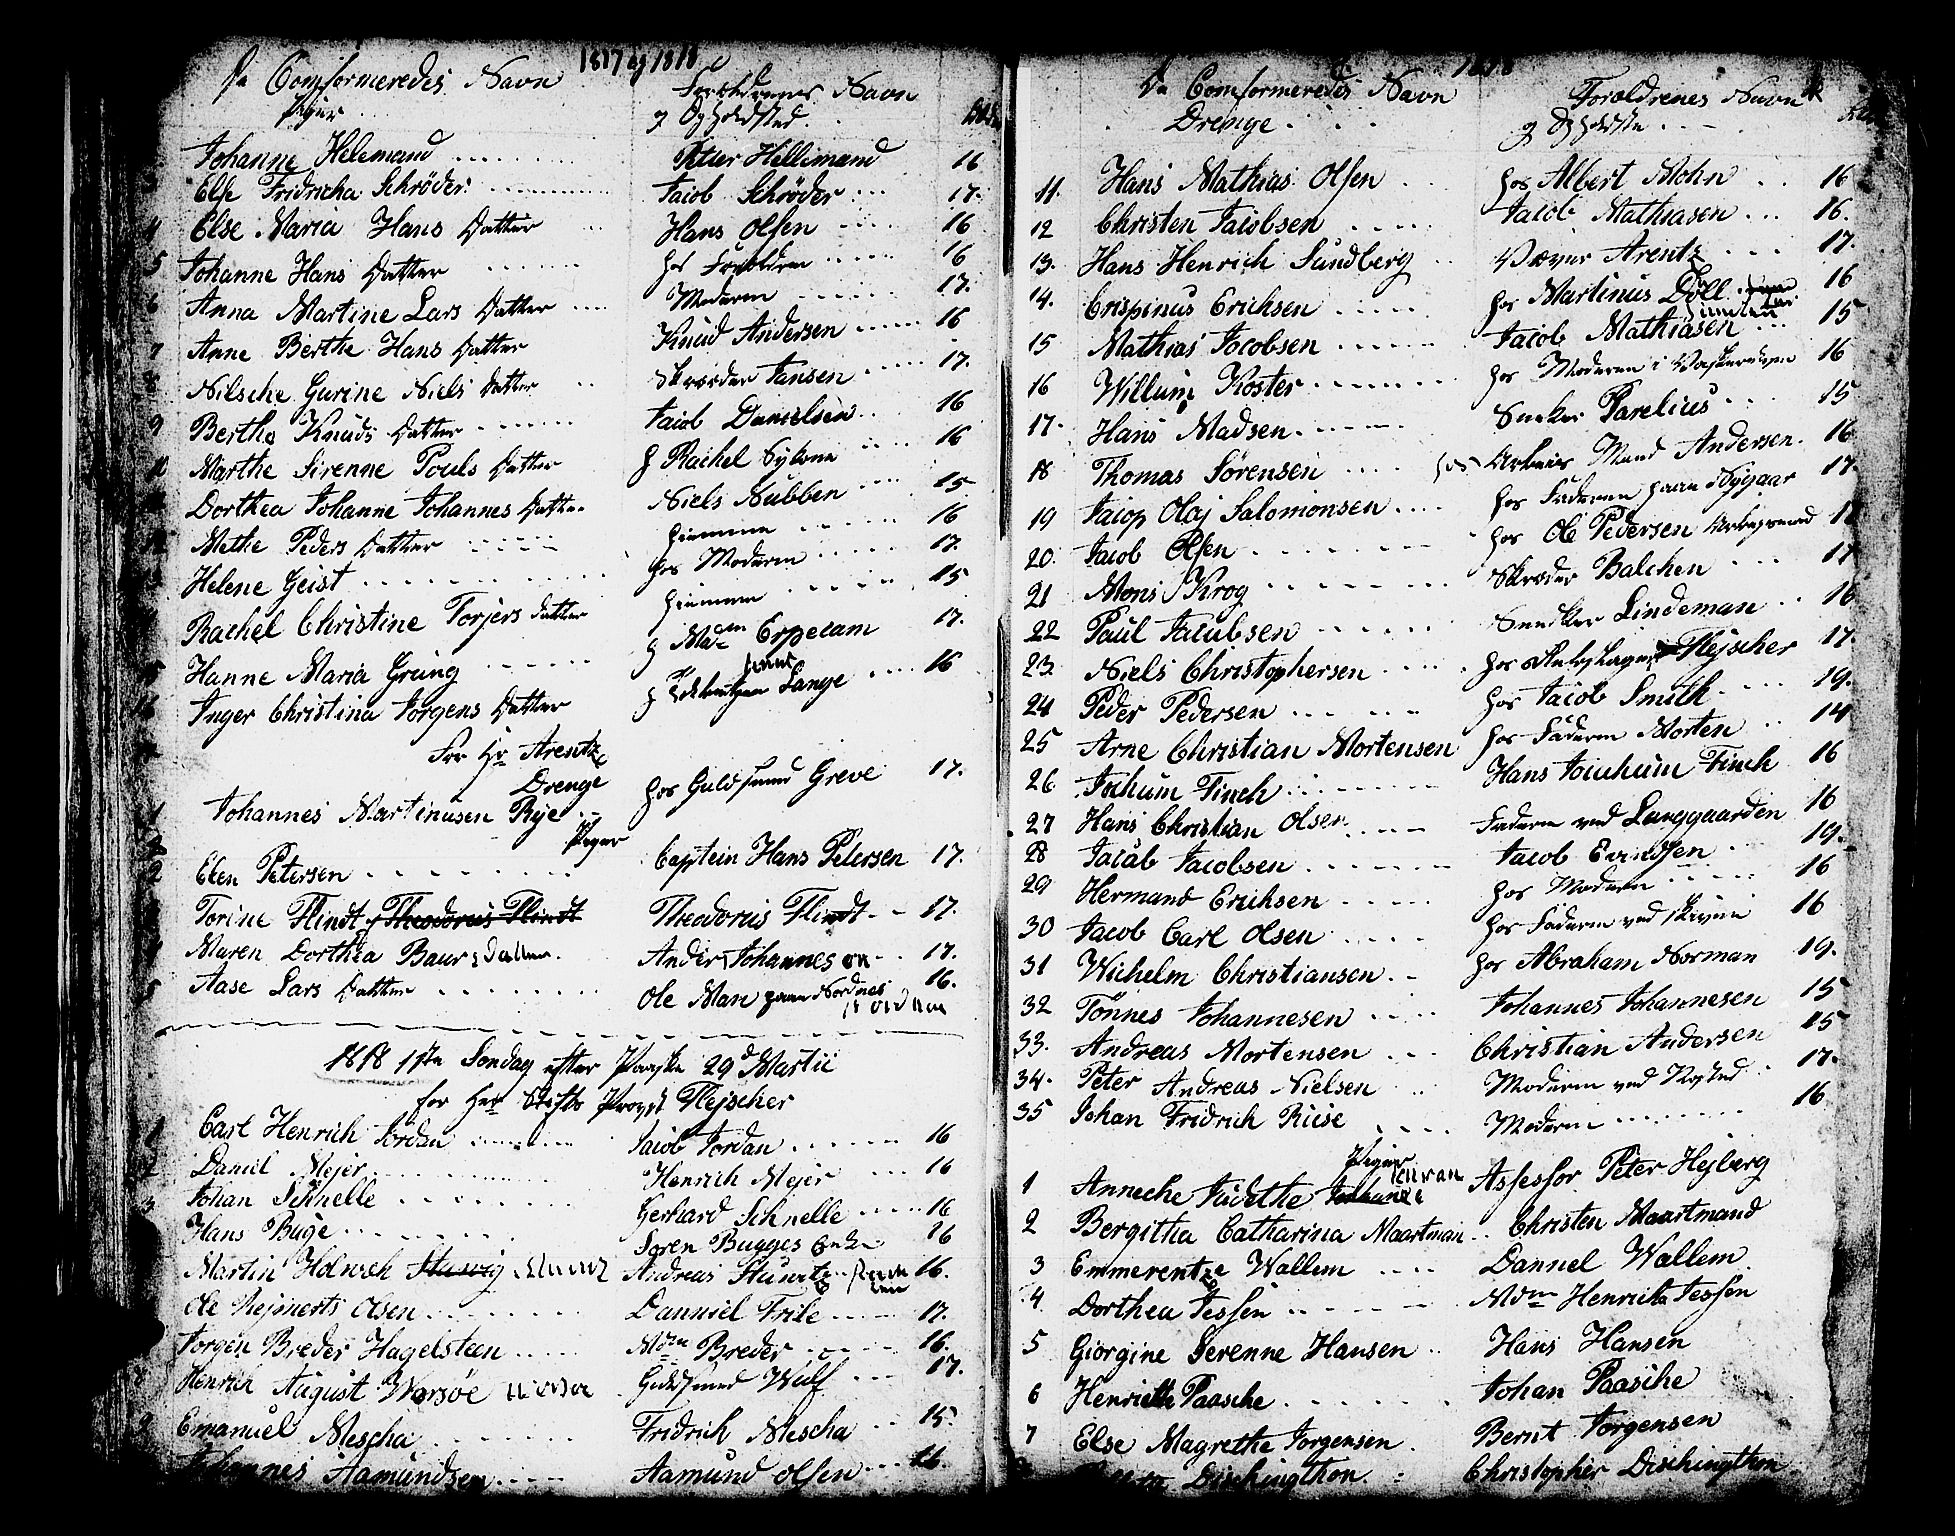 1817 og 1818
De Comformeredes Navn
Piger
Forældrenes Navn
og Opholdsted
Johanne Helemand Petter Hellimand 16
3 Else Fridricha Schrøder Jacob Schrøder 17.
4 Else Maria Hans Datter Hans Olsen 16
5 Johanne Hans Datter hos Forældren 16
6 Anna Martine Lars Datter Moderen 17.
7 Anne Berthe Hans Datter Knud Andersen 16
8 Nilsche Gurine Niels Datter Skræder Jansen 17.
9 Berthe Knuds Datter Jacob Danielsen 16
10 Marthe Sirenne Pouls Datter h Rachel 16
Dorthea Johanne Johannes Datter Niels Nubben 15
12 Methe Peders Datter hiemme 16
13 Helene Geist hos Moderen 17.
Rachel Christine Torjers datter hiemme 15
15 Hanne Maria Grung h Madm Erpecam 17.
16 Inger Christina Jorgens Datter h Lange 16
For Hr Arentz
Drenge
1 Johannes Martinusen Rye hos Guldsmed Greve 17.
Piger
2 Elen Petersen Captein Hans Petersen 17.
Torine Flindt Theodorus Flindt Theodorus Flindt 17.
4 Maren Dorthea Baurs Datter Anders Johannesen 17.
5 Aase Lars Datter Ole Man paa Nordnes 16.
1818 1ste Søndag efter Paaske 29d Martii
for Herr Stifts Provst Flejscher
1 Carl Henrich Jordan Jacob Jordan 16
2 Daniel Mejer Henrich Mejer 16
3 Johan Schnelle Gerhard Schnelle 16
Hans Buge Søren Bugges Enke 16
Martin Holwech Stuwitz Andreas Stuwitz 16.
Ole Rejnerts Olsen Danniel Friis 17.
Jorgen Breder Hagelsteen Mdm Breder 16.
8 Henrich August Warsøe Guldsmed Wulf 17.
9 Emanuel Mescha Fridrich Mescha 15.
Johannes Aamundsen Aamund Olsen 16.
1818
De Comformeredes Navn
Drenge
Forældrenes Navn
og Opholdste
11. Hans Mathias Olsen hos Albert Mohn 16
12 Christen Jacobsen Jacob Mathiasen 16.
13. Hans Henrich Sundberg Væver Arentz 17.
14. Crispinus Erichsen hos Martinus Döll 16
15 Mathias Jocobsen Jacob Mathiasen 15
16 Willum Koster hos Moderen i 16
17. Hans Madsen Sneker Parelius 15
18 Thomas Sørensen hos Arbeids Mand Andersen. 16
19 Jacop Olaj Salomonsen hos Faderen paa Nygaar 17.
20. Jacob Olsen hos Ole Pedersen
21 Mons Krog Skræder Balchen 17
22 Paul Jacubsen Snedker Lindeman 16
23 Niels Christophersen hos Flejscher 17.
24 Peder Pedersen hos Jacob Smith 19.
25 Arne Christian Mortensen hos Faderen Morten 14
26 Jochum Finch Hans Jochum Finch 16
27 Hans Christian Olsen Faderen ved Lunggaarden 16
28 Jacob Jacobsen Jacob Evindsen 19.
29 Hermand Erichsen hos Moderen 16
30 Jacob Carl Olsen hos Faderen ved 16
31 Wichelm Christiansen hos Abraham Norman 19.
32 Tönnes Johannesen Johannes Johannesen 15
33. Andreas Mortensen Christian Andersen 15
34. Peter Andreas Nielsen Moderen ved 17.
35 Johan Fridrich Riise Moderen 16
Piger
1 Anneche Judithe Assessor Peter Hejberg
2 Bergitha Catharina Maartman Christen Maartmand
3 Emmerentze Wallem Dannel Wallem
4 Dorthea Jessen Mdm Henricha Jessen
5 Giorgine Serenne Hansen Hans Hansen
6 Henriette Paasche Johan Paasche
7 Else Magrethe Jorgensen Bernt Jorgensen
Dischingthon Christopher Dischingthon